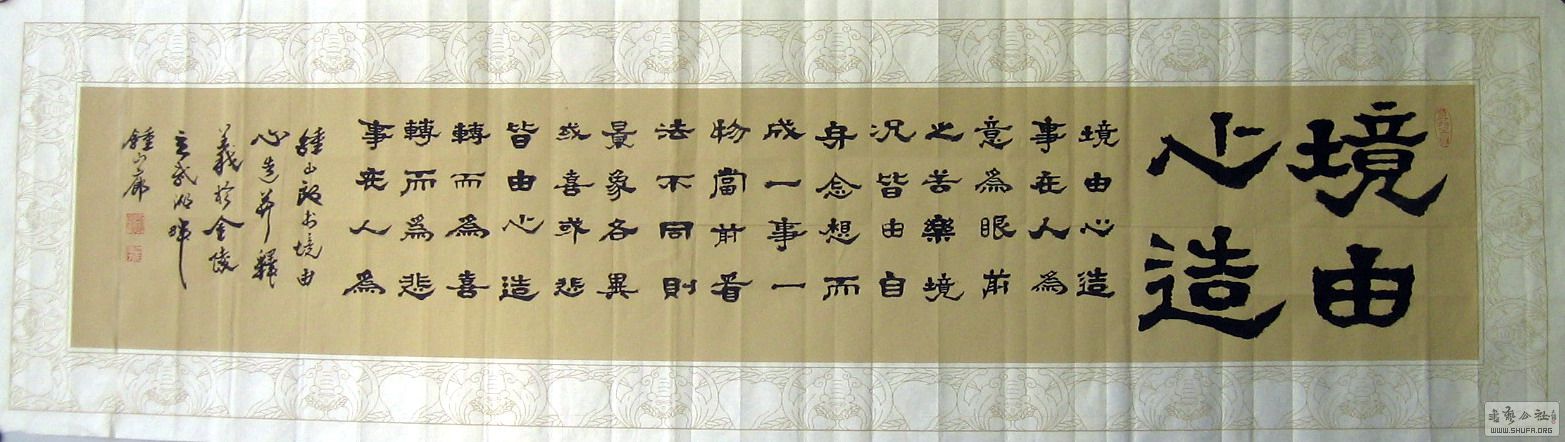 境由
心造
境由心造
事在人為
意為眼前
之苦樂境
況皆由自
身念想而
成一事一
物當前看
法不同則
景象各異
或喜或悲
皆由心造
轉而為喜
轉而為悲
事在人為
鍾山郎書境由
心造并釋
義於金陵
玄武湖畔
鍾山廊
書藝公社
WWW.SHUFA.ORG